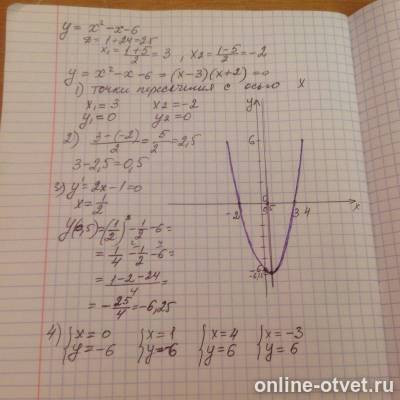 y = x² - x - 6
D = 1 + 24 = 25
x₁ = (1+5)/2 = 3, x₂ = (1-5)/2 = -2
y = x² - x - 6 = (x-3)(x+2) = 0
1) точки пересечения с осью x
x₁ = 3 x₂ = -2
y₁ = 0 y₂ = 0
2) (3-(-2))/2 = 5/2 = 2,5
3 - 2,5 = 0,5
3) y' = 2x - 1 = 0
x = 1/2
y(0,5) = (1/2)² - 1/2 - 6 =
= 1/4 - 1/2 - 6 =
= (1-2-24)/4 =
= -25/4 = -6,25
4) {x = 0 {x = 1 {x = 4 {x = -3
{y = -6 {y = -6 {y = 6 {y = 6
y
6
0
-2 0,5 3 4 x
-6
-6,25
online-otvet.ru